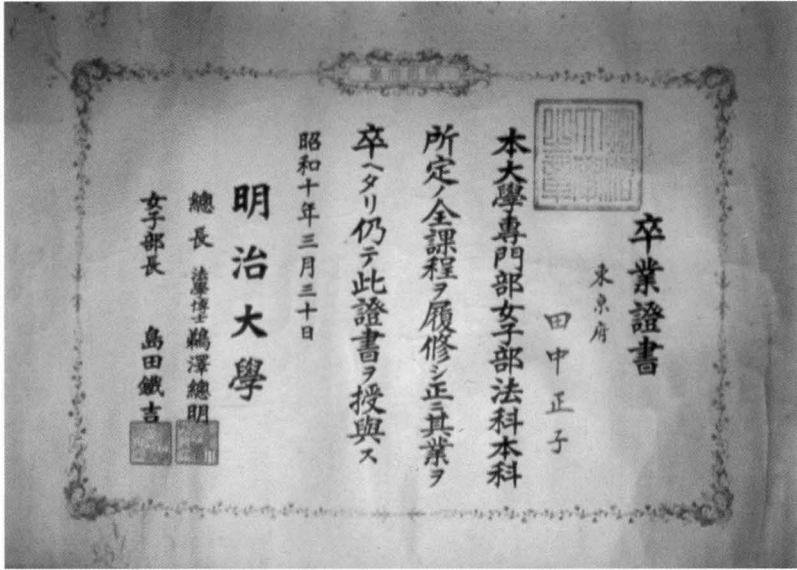 卒業證書
東京府
田中正子
本大學專門部女子部法科本科
所定ノ全課程ヲ履修シ正ニ其業ヲ
卒ヘタリ仍テ此證書ヲ授與ス
昭和十年三月三十日
明治大學
總長 法學博士 鵜澤總明
女子部長 島田鐵吉